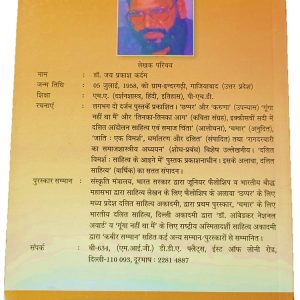 लेखक परिचय
नाम : डॉ. जय प्रकाश कर्दम
जन्म तिथि : 05 जुलाई, 1958, को ग्राम-इन्दरगढ़ी, गाज़ियाबाद (उत्तर प्रदेश)
शिक्षा : एम.ए. (दर्शनशास्त्र, हिंदी, इतिहास), पी-एच.डी.
रचनाएं : लगभग दो दर्जन पुस्तकें प्रकाशित। 'छप्पर' और 'करुणा' (उपन्यास) 'गूंगा
नहीं था मैं' और 'तिनका-तिनका आग' (कविता संग्रह), इक्कीसवीं सदी में
दलित आंदोलन साहित्य एवं समाज चिंता' (आलोचना), 'चमार' (अनुदित),
'जाति : एक विमर्श', धर्मांतरण और दलित' (संपादित) तथा 'रागदरबारी
का समाजशास्त्रीय अध्ययन' (शोध-प्रबंध) विशेष उल्लेखनीय। 'दलित
विमर्श : साहित्य के आइने में' पुस्तक प्रकाशनाधीन। इसके अलावा, दलित
साहित्य' (वार्षिक) का सतत संपादन।
पुरस्कार सम्मान : संस्कृति मंत्रालय, भारत सरकार द्वारा जूनियर फैलोशिप व भारतीय बौद्ध
महासभा द्वारा साहित्य लेखन के लिए फैलोशिप के अलावा 'छप्पर' के लिए
मध्य प्रदेश दलित साहित्य अकादमी, द्वारा प्रथम पुरस्कार, 'चमार' के लिए
भारतीय दलित साहित्य, दिल्ली अकादमी द्वारा 'डॉ. आंबेडकर नेशनल
अवार्ड' व 'गूंगा नहीं था मैं' के लिए राष्ट्रीय अस्मितादर्शी साहित्य अकादमी
द्वारा 'कबीर सम्मान' सहित कई अन्य सम्मान/पुरस्कारों से सम्मानित।
संपर्क : बी-634, (एम.आई.जी) डी.डी.ए. फ्लैट्स, ईस्ट ऑफ लोनी रोड,
दिल्ली-110 093, दूरभाष : 2281 4887